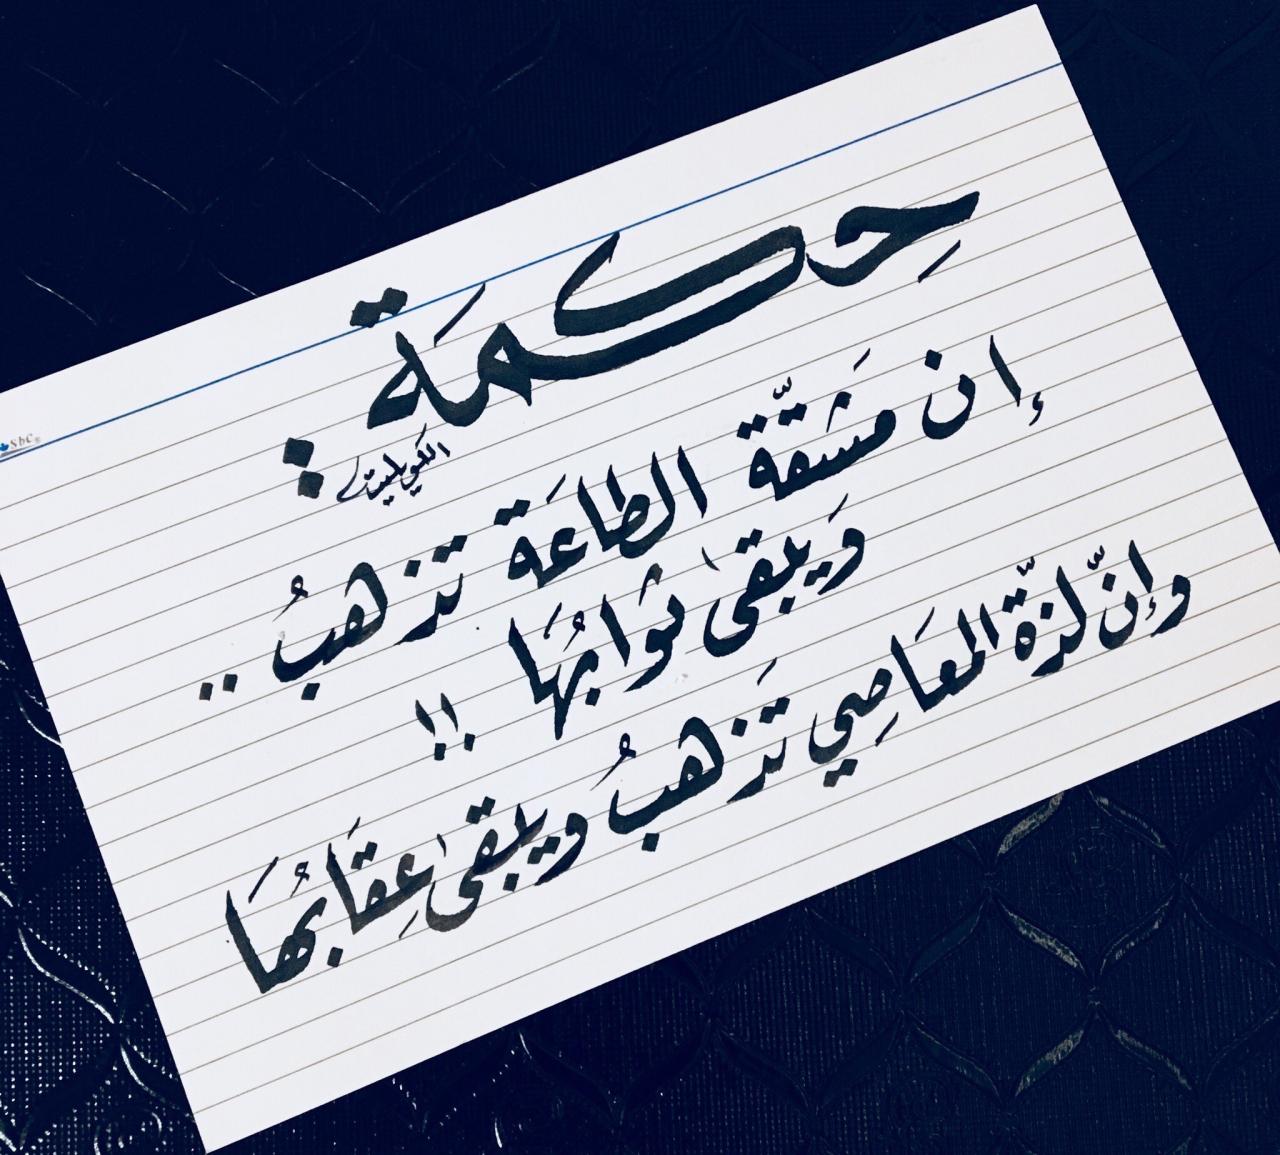 حِكمَة :
إن مَشقّة الطاعَة تذهبُ ..
وَيبقى ثوَابُهَا !!
وإنّ لذّة المعَاصِي تَذهبُ ويبقى عِقَابُهَا
sbc